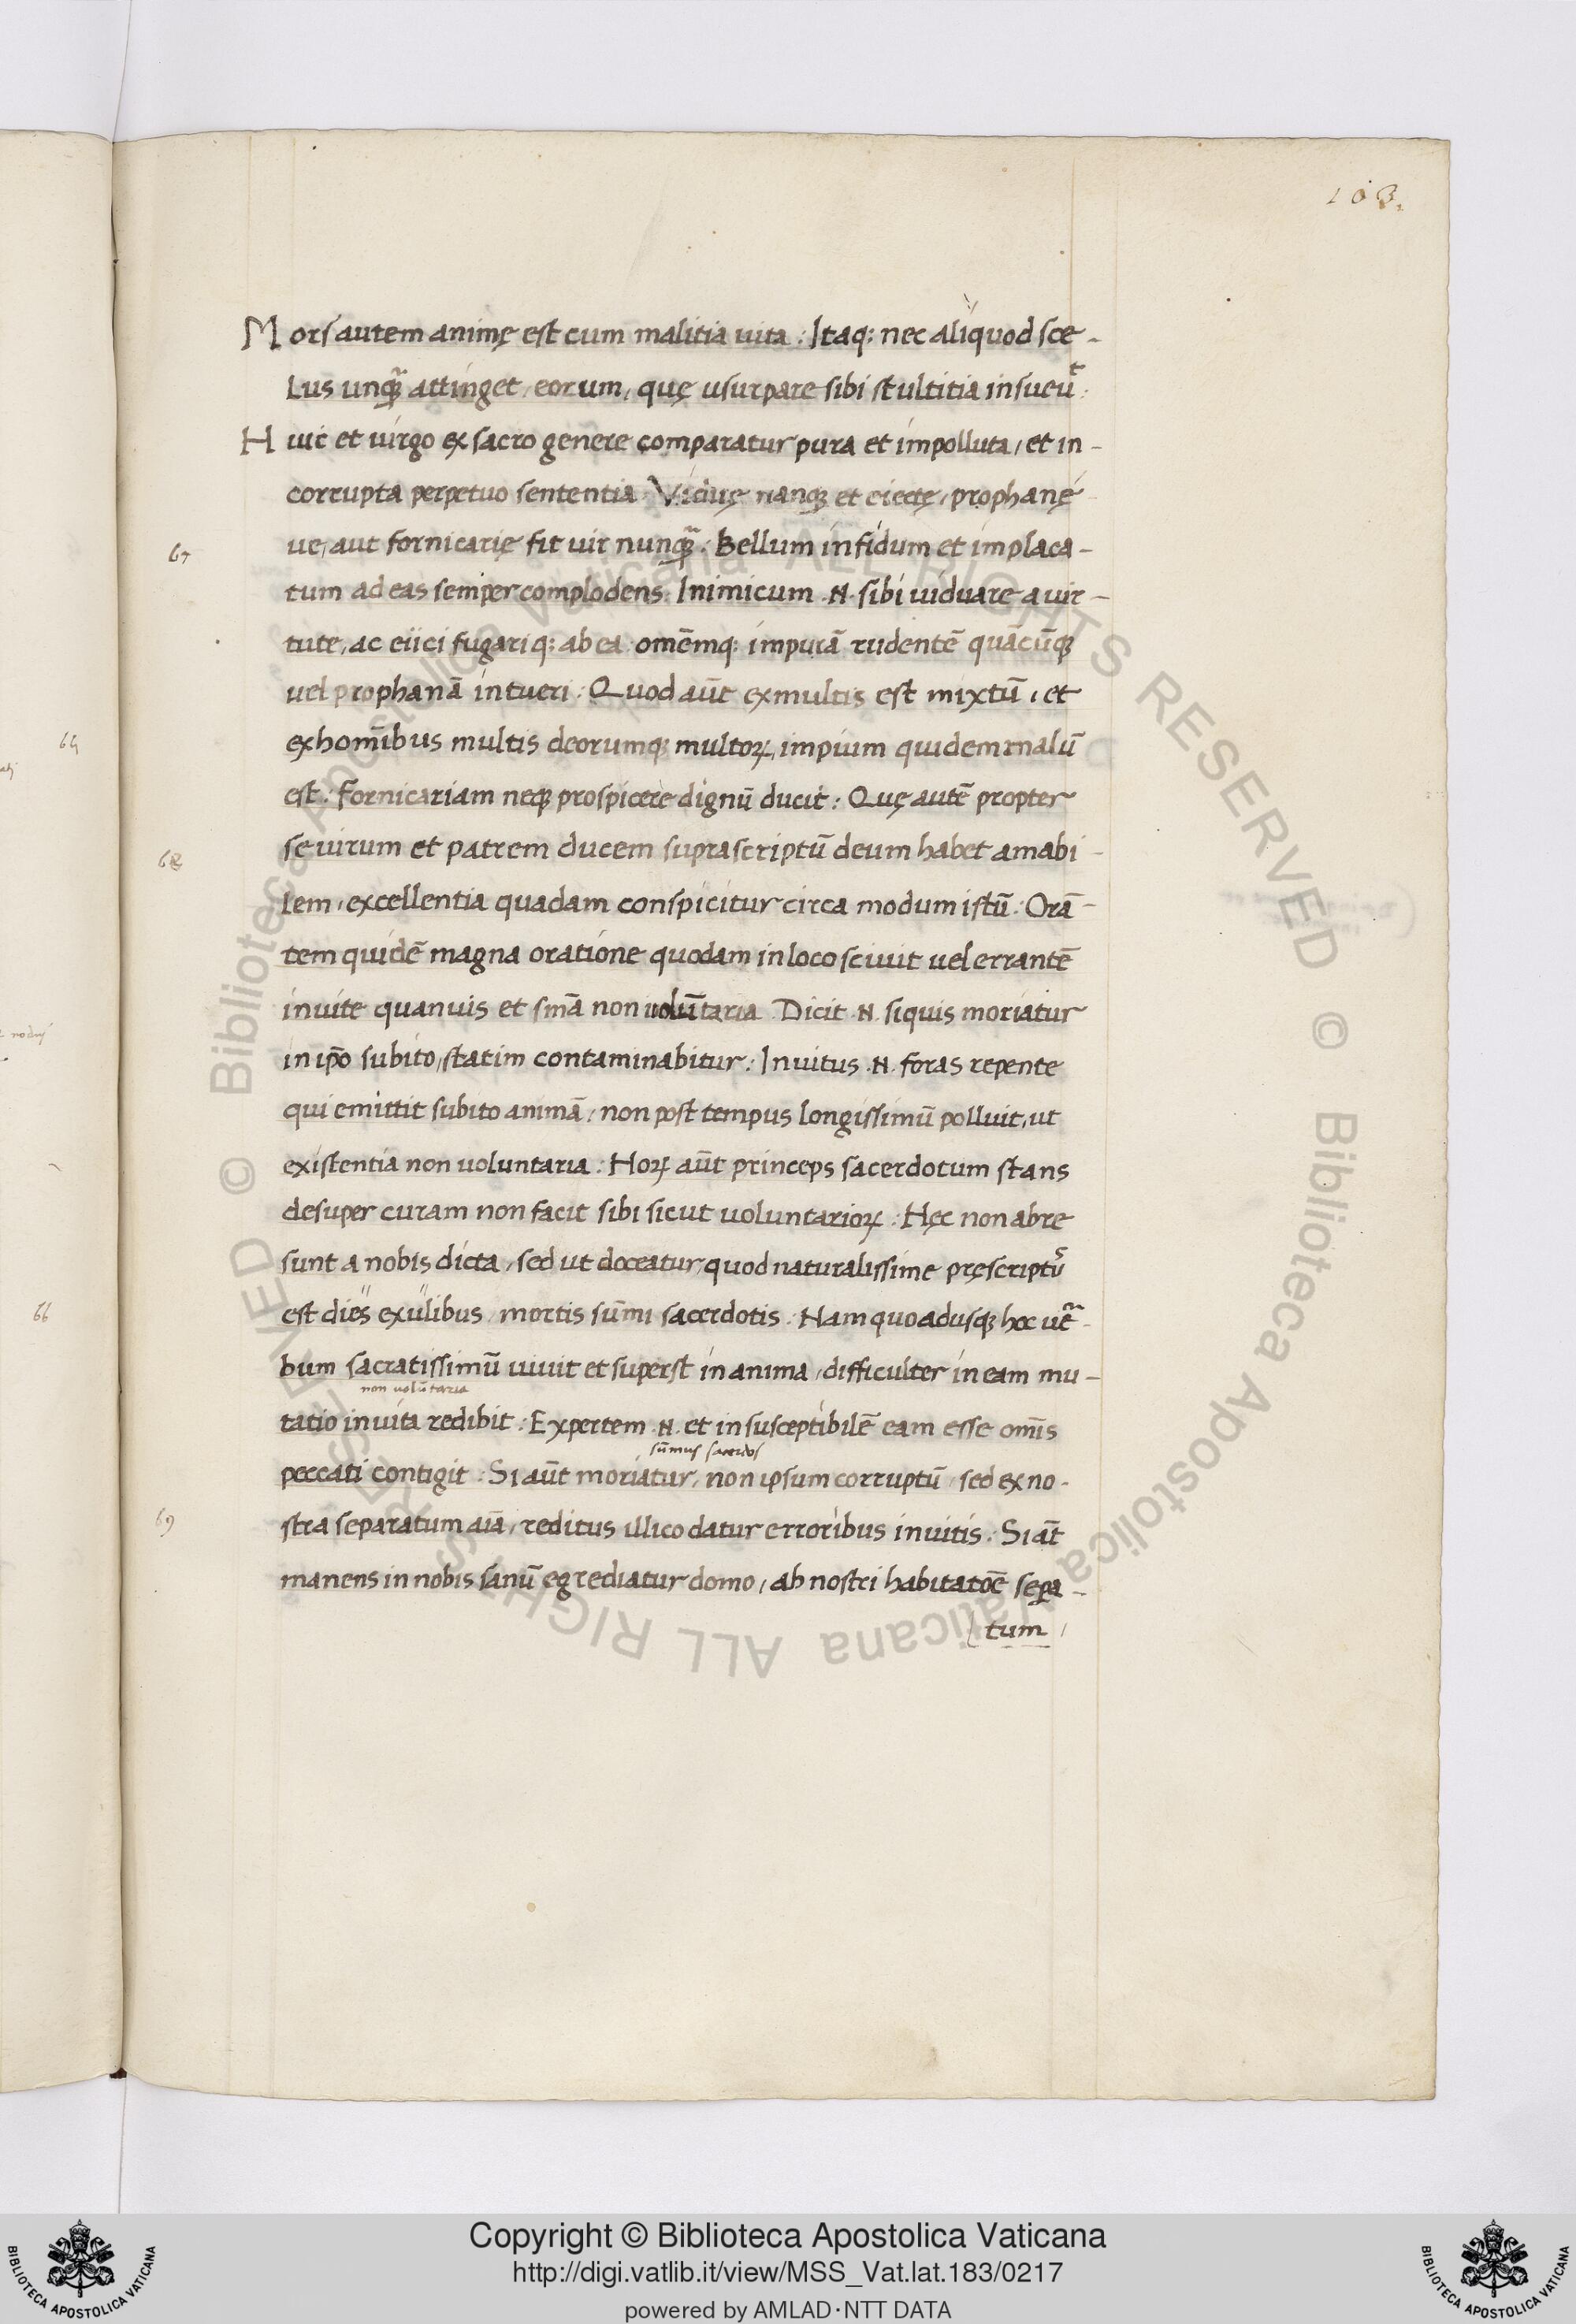 103.
Mors autem animę est cum malitia uita : Itaq; nec aliquod sce-
lus unq̃ attinget, eorum, quę usurpare sibi stultitia insueuit :
Huic et uirgo ex sacro genere comparatur pura et impolluta, et in-
corrupta perpetuo sententia. Viduę nanq; et eiectę, prophanę
67
ue, aut fornicarię fit uir nunq̃ : Bellum infidum et implaca-
tum ad eas semper complodens. Inimicum .N. sibi uiduare a uir-
tute, ac eiici fugariq; ab ea omẽmq; impurã rudentẽ quãcũq;
uel prophanã intueri : Quod aũt ex multis est mixtũ, et
64
ex homĩbus multis deorumq; multoꝝ, impium quidem malũ
est : Fornicariam neq; prospicere dignũ ducit : Quę autẽ propter
68
se uirum et patrem ducem suprascriptũ deum habet amabi-
lem, excellentia quadam conspicitur circa modum istũ : Orã-
tem quidẽ magna oratione quodam in loco sciuit uel errantẽ
inuite quanuis et sm̃a non uolũtaria Dicit .N. siquis moriatur
in ip̃o subito, statim contaminabitur : Inuitus .N. foras repente
qui emittit subito animã, non post tempus longissimũ polluit, ut
existentia non uoluntaria : Hoꝝ aũt princeps sacerdotum stans
desuper curam non facit sibi sicut uoluntarioꝝ : Hęc non ab re
sunt a nobis dicta, sed ut doceatur, quod naturalissime pręscriptũs
66
est dies exulibus mortis sũmi sacerdotis : Nam quoadusq; hoc uer-
bum sacratissimũ uiuit et superst in anima, difficulter in eam mu-
non uolũtaria
tatio inuita redibit : Expertem .N. et insusceptibilẽ eam esse om̃is
sũmus sacerdos
peccati contigit : Si aũt moriatur, non ipsum corruptũ, sed ex no-
69
stra separatum aĩa, reditus illico datur erroribus inuitis : Si aũt
manens in nobis sanũ egrediatur domo, ab nostri habitatõe sepa-
tum
Copyright © Biblioteca Apostolica Vaticana
http://digi.vatlib.it/view/MSS_Vat.lat.183/0217
powered by AMLAD·NTT DATA
BIBLIOTECA APOSTOLICA VATICANA
BIBLIOTECA APOSTOLICA VATICANA
© Biblioteca Apostolica Vaticana ALL RIGHTS RESERVED © Biblioteca Apostolica Vaticana ALL RIGHTS RESERVED